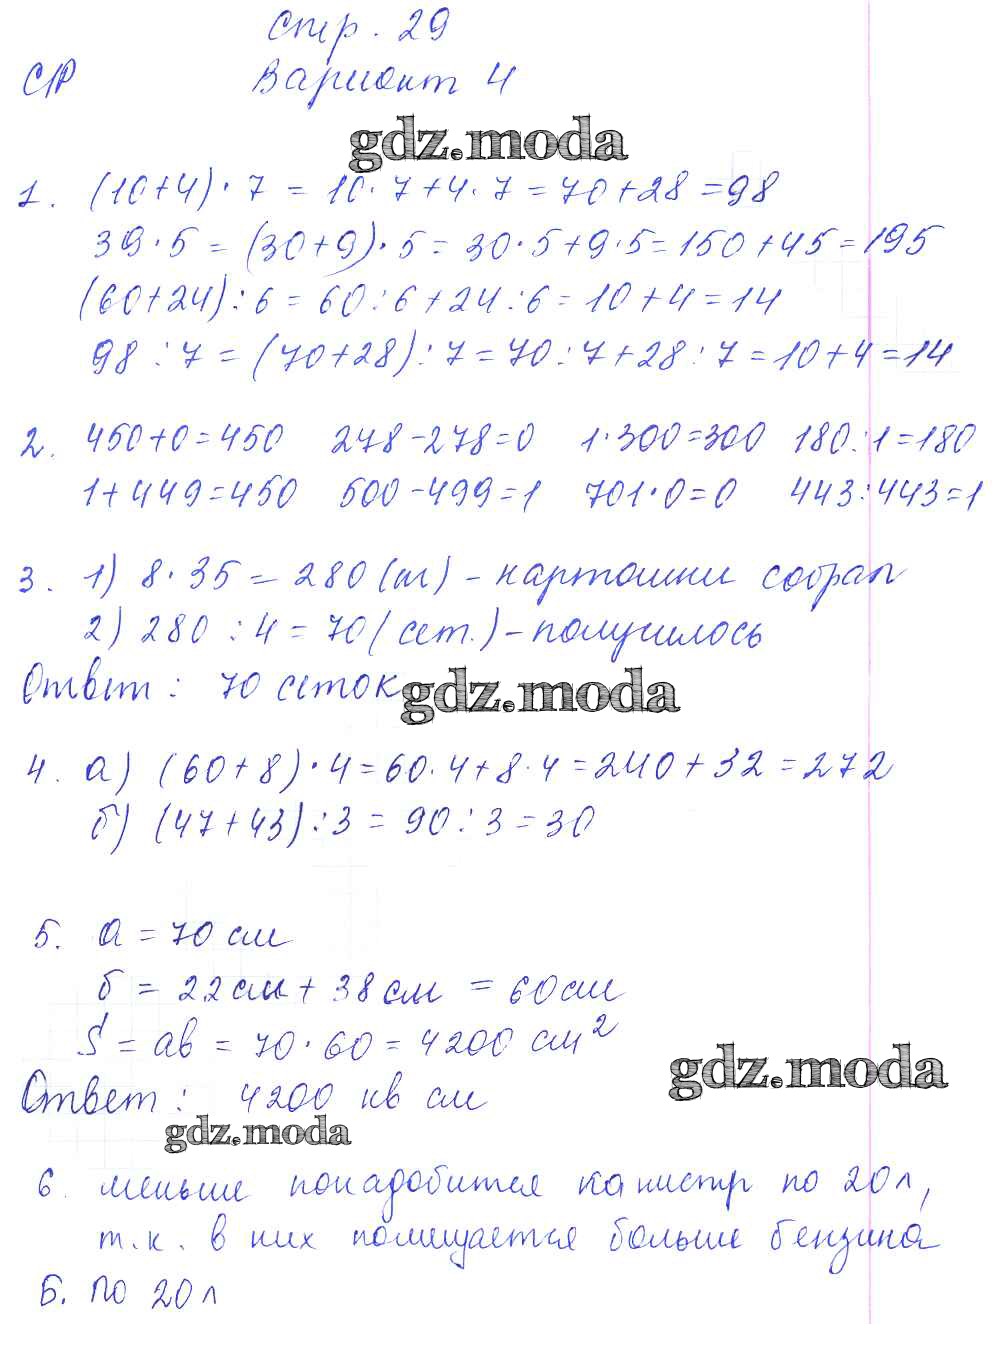 стр. 29
С/Р Вариант 4
gdz.moda
1. (10+4)·7 = 10·7+4·7=70+28=98
39·5 = (30+9)·5=30·5+9·5=150+45=195
(60+24):6=60:6+24:6=10+4=14
98:7=(70+28):7=70:7+28:7=10+4=14
2. 450+0=450 278-278=0 1·300=300 180:1=180
1+449=450 500-499=1 701·0=0 443:443=1
3. 1) 8·35=280(м) - картошки собрал
2) 280:4=70(сет.) - получилось
Ответ: 70 сеток
gdz.moda
4. а) (60+8)·4=60·4+8·4=240+32=272
б) (47+43):3=90:3=30
5. а = 70 см
б = 22см + 38см = 60см
S = ab = 70·60 = 4200 см²
gdz.moda
Ответ: 4200 кв см
gdz.moda
6. меньше понадобится канистр по 20л,
т.к. в них помещается больше бензина
Б. по 20 л